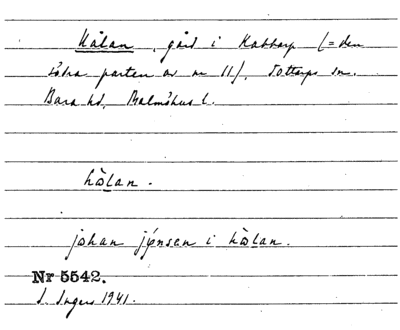 Hålan, gård i Kabbarp (= den
södra parten av nr 11), Tottarps sn.
Bara hd, Malmöhus l.
hòlan.
johan jýnsan i hòlan.
Nr 5542.
I. Ingers 1941.